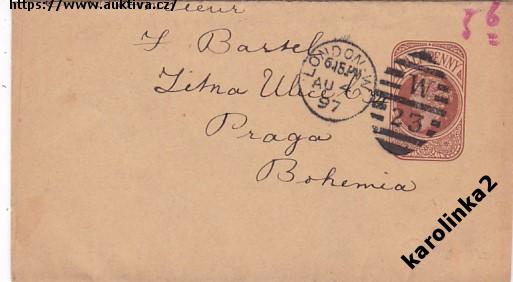 https://www.auktiva.cz/
sieur
F Bartel
Zitna Ulice
Praga
Bohemia
LONDON.W.C
6.15.PM
AU 4
97
HALFPENNY
W.C
23
karolinka2